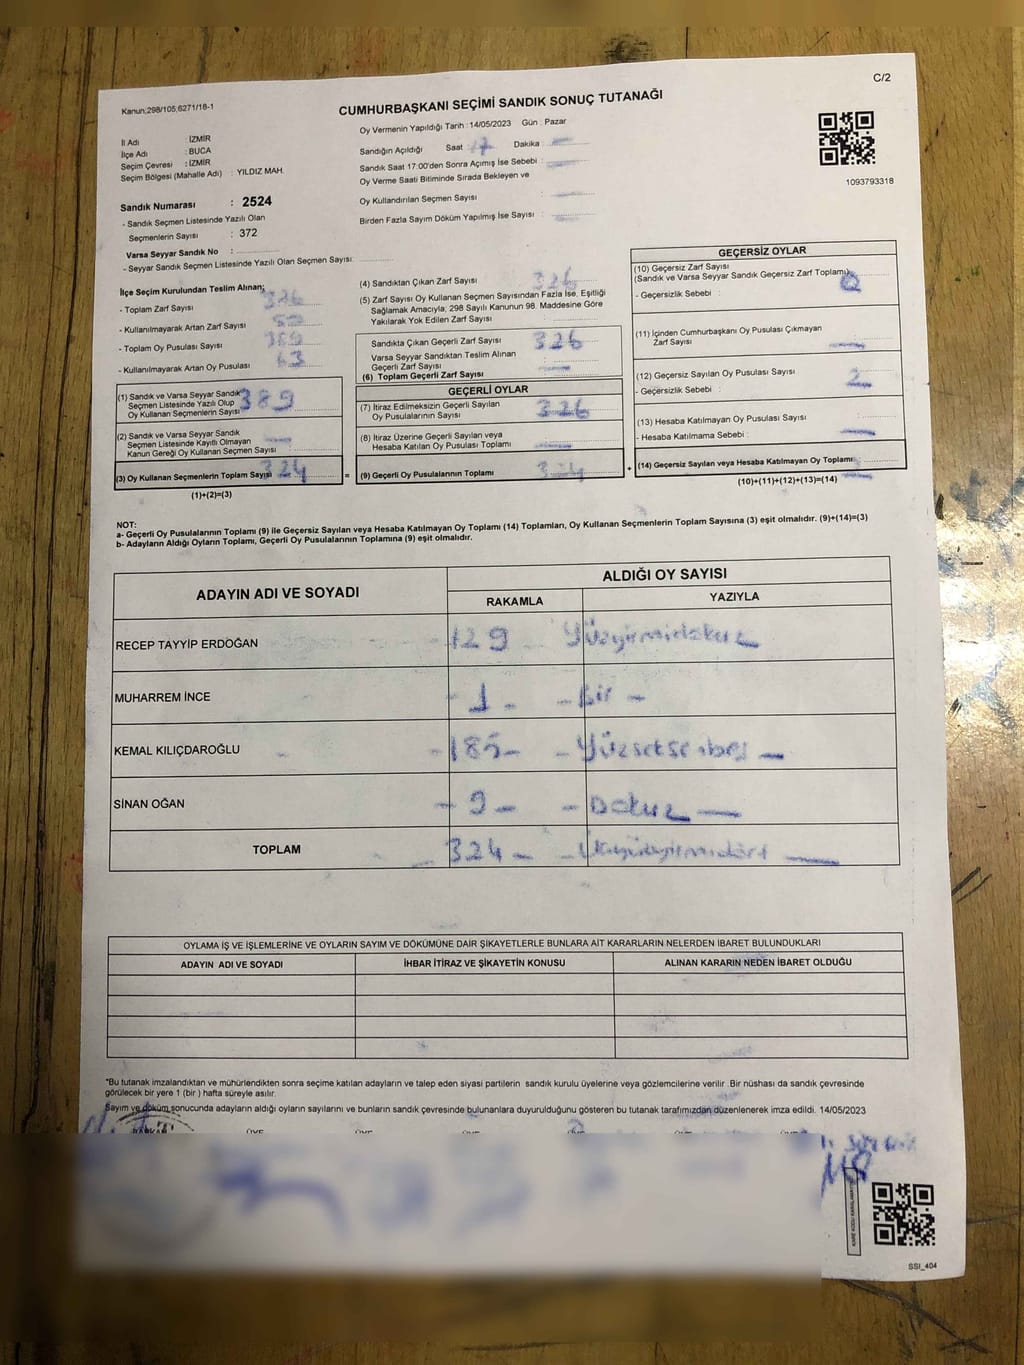 C/2
Kanun:298/105,6271/16-1
CUMHURBAŞKANI SEÇİMİ SANDIK SONUÇ TUTANAĞI
1093793318
İl Adı : İZMİR
İlçe Adı : BUCA
Seçim Çevresi : İZMİR
Seçim Bölgesi (Mahalle Adı) : YILDIZ MAH.
Sandık Numarası : 2524
- Sandık Seçmen Listesinde Yazılı Olan
Seçmenlerin Sayısı : 372
Varsa Seyyar Sandık No :
- Seyyar Sandık Seçmen Listesinde Yazılı Olan Seçmen Sayısı:
Oy Vermenin Yapıldığı Tarih : 14/05/2023 Gün : Pazar
Sandığın Açıldığı Saat : 17 Dakika :
Sandık Saat 17:00'den Sonra Açımış İse Sebebi :
Oy Verme Saati Bitiminde Sırada Bekleyen ve
Oy Kullandırılan Seçmen Sayısı :
Birden Fazla Sayım Döküm Yapılmış İse Sayısı :
İlçe Seçim Kurulundan Teslim Alınan;
- Toplam Zarf Sayısı :
- Kullanılmayarak Artan Zarf Sayısı :
- Toplam Oy Pusulası Sayısı :
- Kullanılmayarak Artan Oy Pusulası : 63
(1) Sandık ve Varsa Seyyar Sandık
Seçmen Listesinde Yazılı Olup
Oy Kullanan Seçmenlerin Sayısı : 389
(2) Sandık ve Varsa Seyyar Sandık
Seçmen Listesinde Kayıtlı Olmayan
Kanun Gereği Oy Kullanan Seçmen Sayısı :
(3) Oy Kullanan Seçmenlerin Toplam Sayısı : 324
(1)+(2)=(3)
(4) Sandıktan Çıkan Zarf Sayısı : 326
(5) Zarf Sayısı Oy Kullanan Seçmen Sayısından Fazla İse, Eşitliği
Sağlamak Amacıyla; 298 Sayılı Kanunun 98. Maddesine Göre
Yakılarak Yok Edilen Zarf Sayısı :
Sandıkta Çıkan Geçerli Zarf Sayısı : 326
Varsa Seyyar Sandıktan Teslim Alınan
Geçerli Zarf Sayısı :
(6) Toplam Geçerli Zarf Sayısı :
GEÇERLİ OYLAR
(7) İtiraz Edilmeksizin Geçerli Sayılan
Oy Pusulalarının Sayısı : 326
(8) İtiraz Üzerine Geçerli Sayılan veya
Hesaba Katılan Oy Pusulası Toplamı :
= (9) Geçerli Oy Pusulalarının Toplamı : 324
GEÇERSİZ OYLAR
(10) Geçersiz Zarf Sayısı
(Sandık ve Varsa Seyyar Sandık Geçersiz Zarf Toplamı) : 0
- Geçersizlik Sebebi :
(11) İçinden Cumhurbaşkanı Oy Pusulası Çıkmayan
Zarf Sayısı :
(12) Geçersiz Sayılan Oy Pusulası Sayısı : 2
- Geçersizlik Sebebi :
(13) Hesaba Katılmayan Oy Pusulası Sayısı :
- Hesaba Katılmama Sebebi :
+ (14) Geçersiz Sayılan veya Hesaba Katılmayan Oy Toplamı :
(10)+(11)+(12)+(13)=(14)
NOT:
a- Geçerli Oy Pusulalarının Toplamı (9) ile Geçersiz Sayılan veya Hesaba Katılmayan Oy Toplamı (14) Toplamları, Oy Kullanan Seçmenlerin Toplam Sayısına (3) eşit olmalıdır. (9)+(14)=(3)
b- Adayların Aldığı Oyların Toplamı, Geçerli Oy Pusulalarının Toplamına (9) eşit olmalıdır.
ADAYIN ADI VE SOYADI ALDIĞI OY SAYISI
RAKAMLA YAZIYLA
RECEP TAYYİP ERDOĞAN -129 Yüzyirmidokuz
MUHARREM İNCE - 1 - - Bir -
KEMAL KILIÇDAROĞLU -185- - Yüzseksenbeş -
SİNAN OĞAN - 9 - - Dokuz -
TOPLAM - 324 - - Üçyüzyirmidört -
OYLAMA İŞ VE İŞLEMLERİNE VE OYLARIN SAYIM VE DÖKÜMÜNE DAİR ŞİKAYETLERLE BUNLARA AİT KARARLARIN NELERDEN İBARET BULUNDUKLARI
ADAYIN ADI VE SOYADI İHBAR İTİRAZ VE ŞİKAYETİN KONUSU ALINAN KARARIN NEDEN İBARET OLDUĞU
*Bu tutanak imzalandıktan ve mühürlendikten sonra seçime katılan adayların ve talep eden siyasi partilerin sandık kurulu üyelerine veya gözlemcilerine verilir .Bir nüshası da sandık çevresinde
görülecek bir yere 1 (bir ) hafta süreyle asılır.
Sayım ve döküm sonucunda adayların aldığı oyların sayılarını ve bunların sandık çevresinde bulunanlara duyurulduğunu gösteren bu tutanak tarafımızdan düzenlenerek imza edildi. 14/05/2023
SSI_404